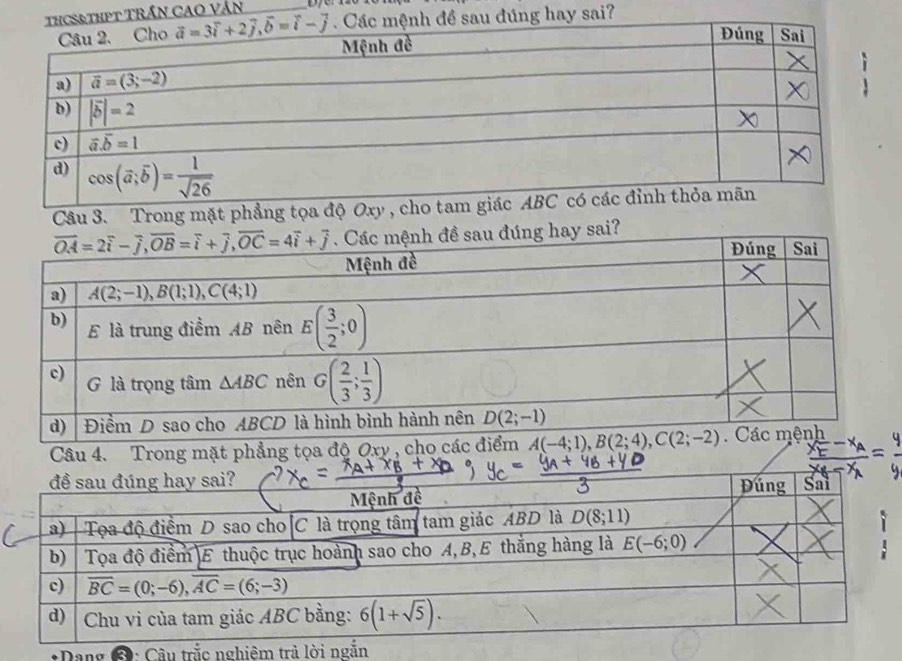 THCS&THPT TRẦN CAO VÂN
Câu 2. Cho a⃗ = 3i⃗ + 2j⃗, b⃗ = i⃗ − j⃗. Các mệnh đề sau đúng hay sai?
Mệnh đề Đúng Sai
a) a⃗ = (3;−2) X
b) |b⃗| = 2 X
c) a⃗.b⃗ = 1 X
d) cos(a⃗;b⃗) = 1/√26 X
Câu 3. Trong mặt phẳng tọa độ Oxy, cho tam giác ABC có các đỉnh thỏa mãn
OA⃗ = 2i⃗ − j⃗, OB⃗ = i⃗ + j⃗, OC⃗ = 4i⃗ + j⃗. Các mệnh đề sau đúng hay sai?
Mệnh đề Đúng Sai
a) A(2;−1), B(1;1), C(4;1) X
b) E là trung điểm AB nên E(3/2;0) X
c) G là trọng tâm ΔABC nên G(2/3;1/3) X
d) Điểm D sao cho ABCD là hình bình hành nên D(2;−1) X
Câu 4. Trong mặt phẳng tọa độ Oxy, cho các điểm A(−4;1), B(2;4), C(2;−2). Các mệnh
(xE − xA)/(xB − xA) =
đề sau đúng hay sai? xC = (xA + xB + xD)/3 ; yC = (yA + yB + yD)/3
Mệnh đề Đúng Sai
a) Tọa độ điểm D sao cho C là trọng tâm tam giác ABD là D(8;11) X
b) Tọa độ điểm E thuộc trục hoành sao cho A, B, E thẳng hàng là E(−6;0) X X
c) BC⃗ = (0;−6), AC⃗ = (6;−3) X
d) Chu vi của tam giác ABC bằng: 6(1+√5). X
Dạng 3: Câu trắc nghiệm trả lời ngắn